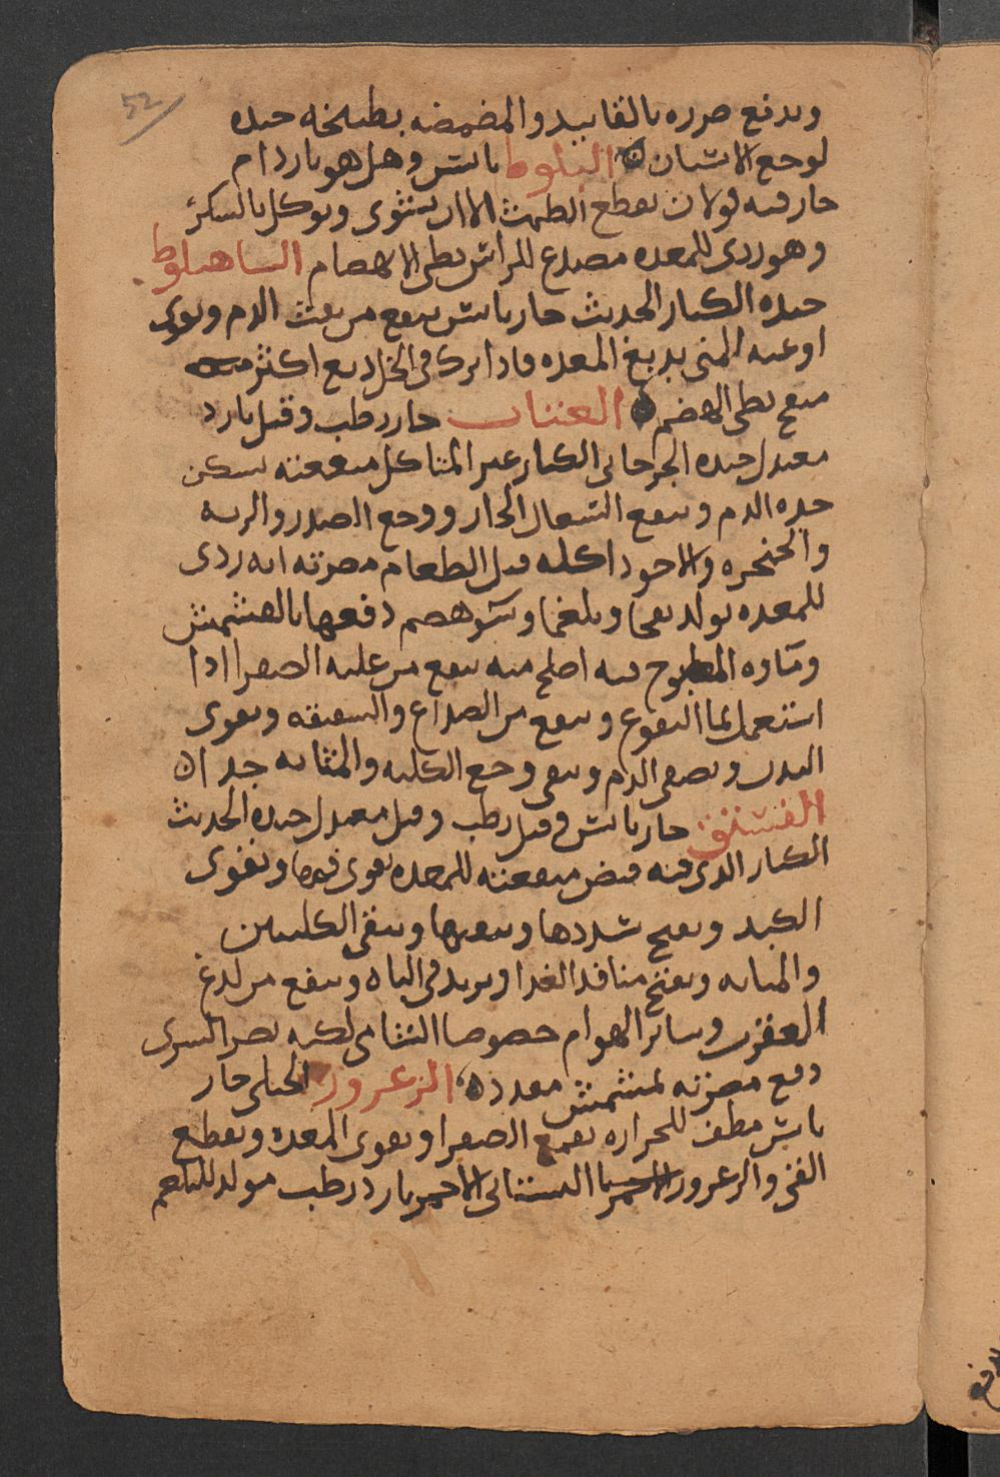 52
ويدفع ضرره بالفانيد والمضمضه بطبيخه جيده
لوجع الاسنان البلوط يابس وهل هو بارد ام
حار فيه قولان يقطع الطمث الا ان يشوى ويوكل بالسكر
وهو ردى للمعده مصدع للراس بطى الانهضام الساهبلوط
جيده الكبار الحديث حار يابس ينفع من نفث الدم ويقوى
اوعيه المنى يدبغ المعده فاذا ترك فى الخل دبغ اكثر منه
منع بطى الهضم العناب حار رطب وقيل بارد
معتدل جيده الجرجانى الكبار غير المتاكل منفعته يسكن
حده الدم وينفع السعال الحار ووجع الصدر والريه
والحنجره والاجود اكله قبل الطعام مضرته انه ردى
للمعده يولد نفخا وبلغما وسو هضم دفعها بالمشمش
وماوه المطبوخ فيه اصلح منه ينفع من غلبه الصفرا اذا
استعمل بما النقوع وينفع من الصداع والشقيقه ويقوى
البدن ويصفى الدم وينفى وجع الكليه والمثانه جدا
الفستق حار يابس وقيل رطب وقيل معتدل جيده الحديث
الكبار الذى فيه قبض منفعته للمعده يقوى فمها ويقوى
الكبد ويفتح سددها وينقيها وينقى الكليتين
والمثانه ويفتح منافذ الغذا ويزيد فى الباه وينفع من لدغ
العقرب وساير الهوام خصوصا الشامى لكنه يضر السرى
دفع مضرته لمشمش مقدد الزعرور الجبلى حار
يابس مطف للحراره يقمع الصفرا ويقوى المعده ويقطع
القى والزعرور الاحمر البستانى الاحمر بارد رطب مولد للبلغم